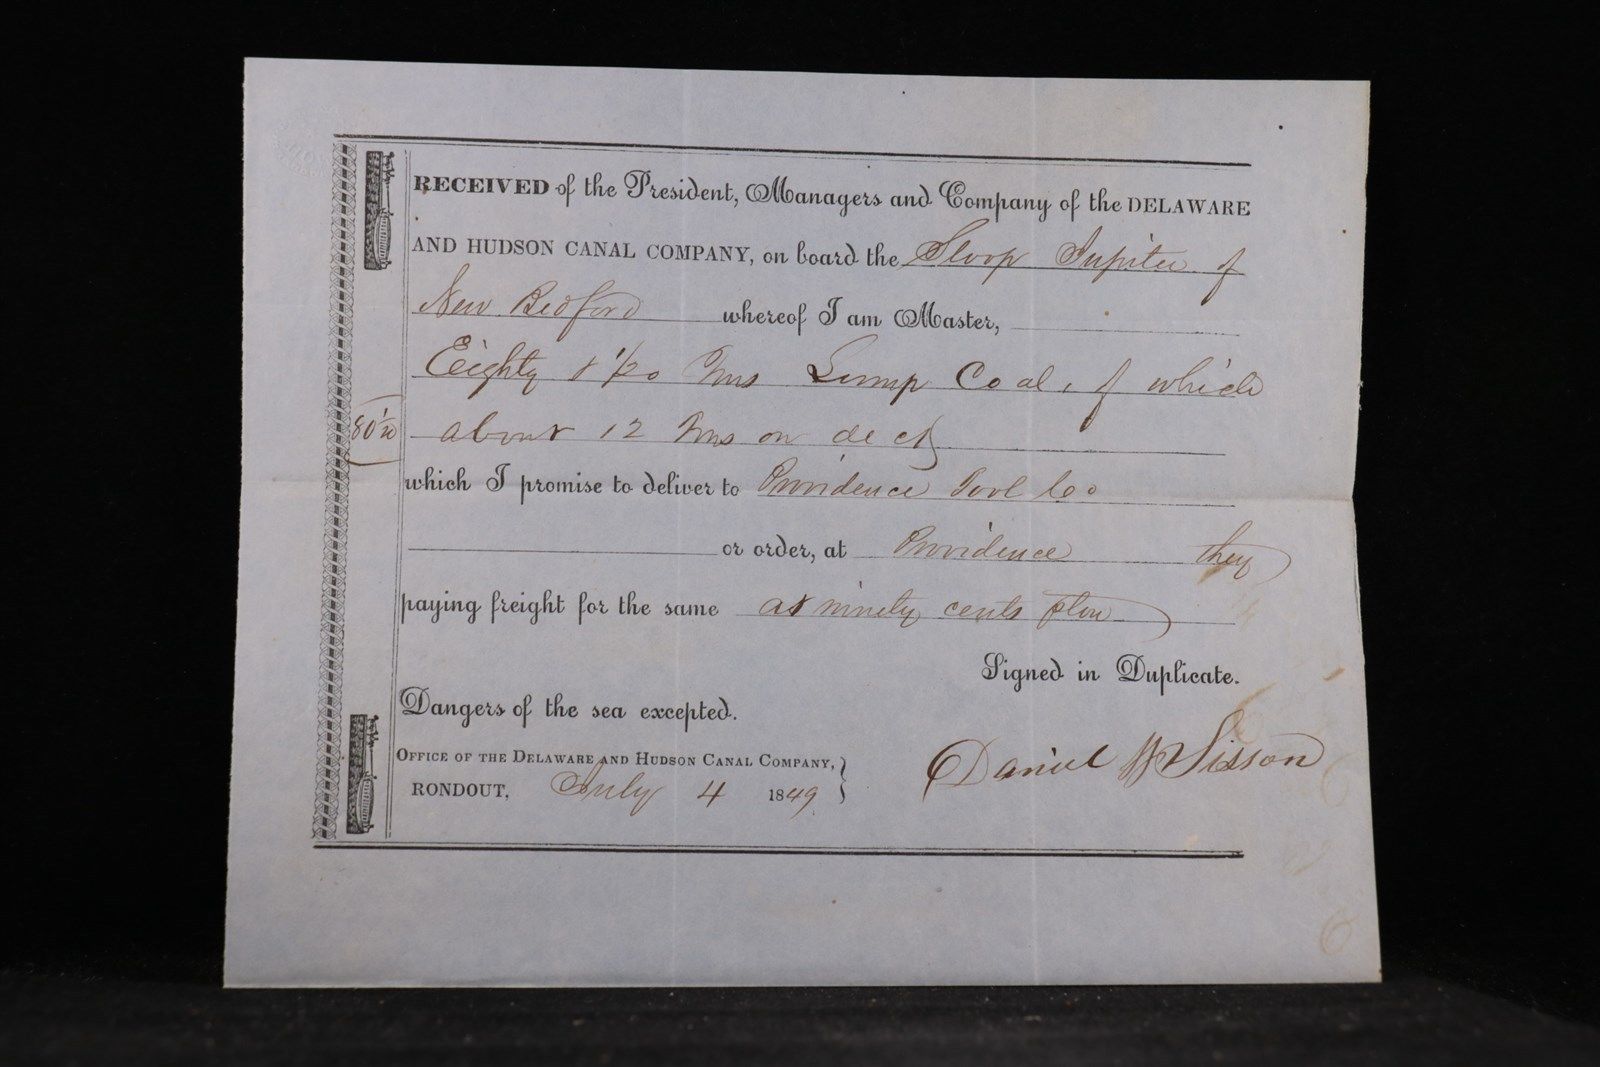 RECEIVED of the President, Managers and Company of the DELAWARE
AND HUDSON CANAL COMPANY, on board the Sloop Jupiter of
New Bedford whereof I am Master,
Eighty & 1/20 Tons Lump Coal, of which
80 1/20 about 12 Tons on deck
which I promise to deliver to Providence Tool Co
or order, at Providence they
paying freight for the same at ninety cents p ton
Signed in Duplicate.
Dangers of the sea excepted.
OFFICE OF THE DELAWARE AND HUDSON CANAL COMPANY,
RONDOUT, July 4 1849
Daniel W Sisson